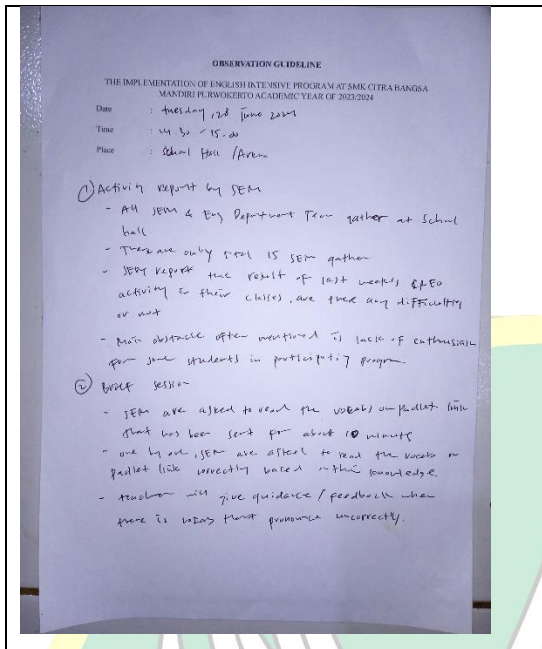 OBSERVATION GUIDELINE
THE IMPLEMENTATION OF ENGLISH INTENSIVE PROGRAM AT SMK CITRA BANGSA
MANDIRI PURWOKERTO ACADEMIC YEAR OF 2023/2024
Date : Tuesday, 28 June 2024
Time : 14.30 - 15.00
Place : School Hall / Arena
① Activity report by SEM
- All SEM & Eng Department Team gather at School
hall
- There are only total 15 SEM gather
- SEM report the result of last weeks
activity in their classes, are there any difficulties
or not
- Main obstacle often mentioned is lack of enthusiasm
for some students in participating program
② Brief session
- SEM are asked to read the vocabs on padlet link
that has been sent for about 10 minutes
- one by one, SEM are asked to read the vocabs on
padlet link correctly based on their knowledge
- teacher will give guidance / feedback when
there is vocabs that pronounce uncorrectly.